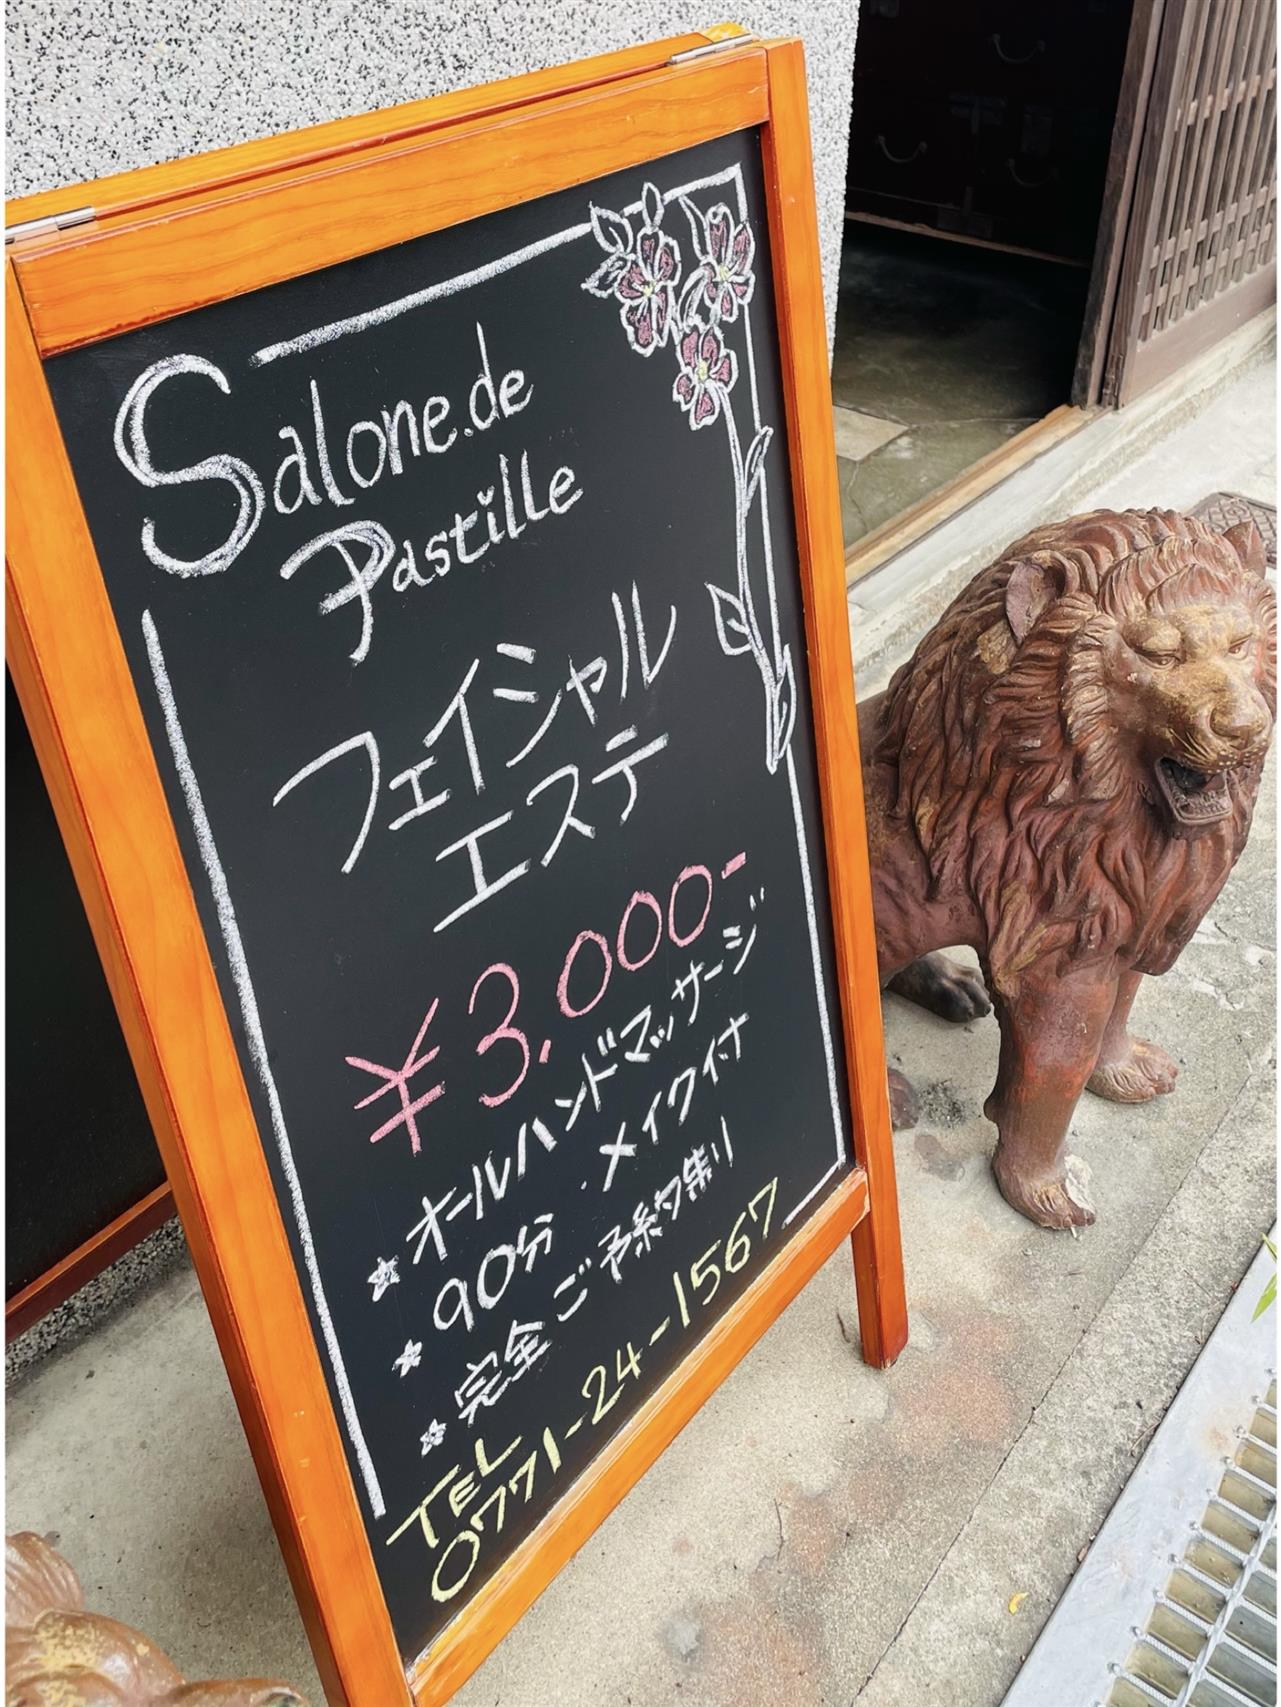 Salone.de
Pastille
フェイシャル
エステ
¥3.000-
★オールハンドマッサージ
★90分・メイク付
★完全ご予約制り
TEL
0771-24-1567